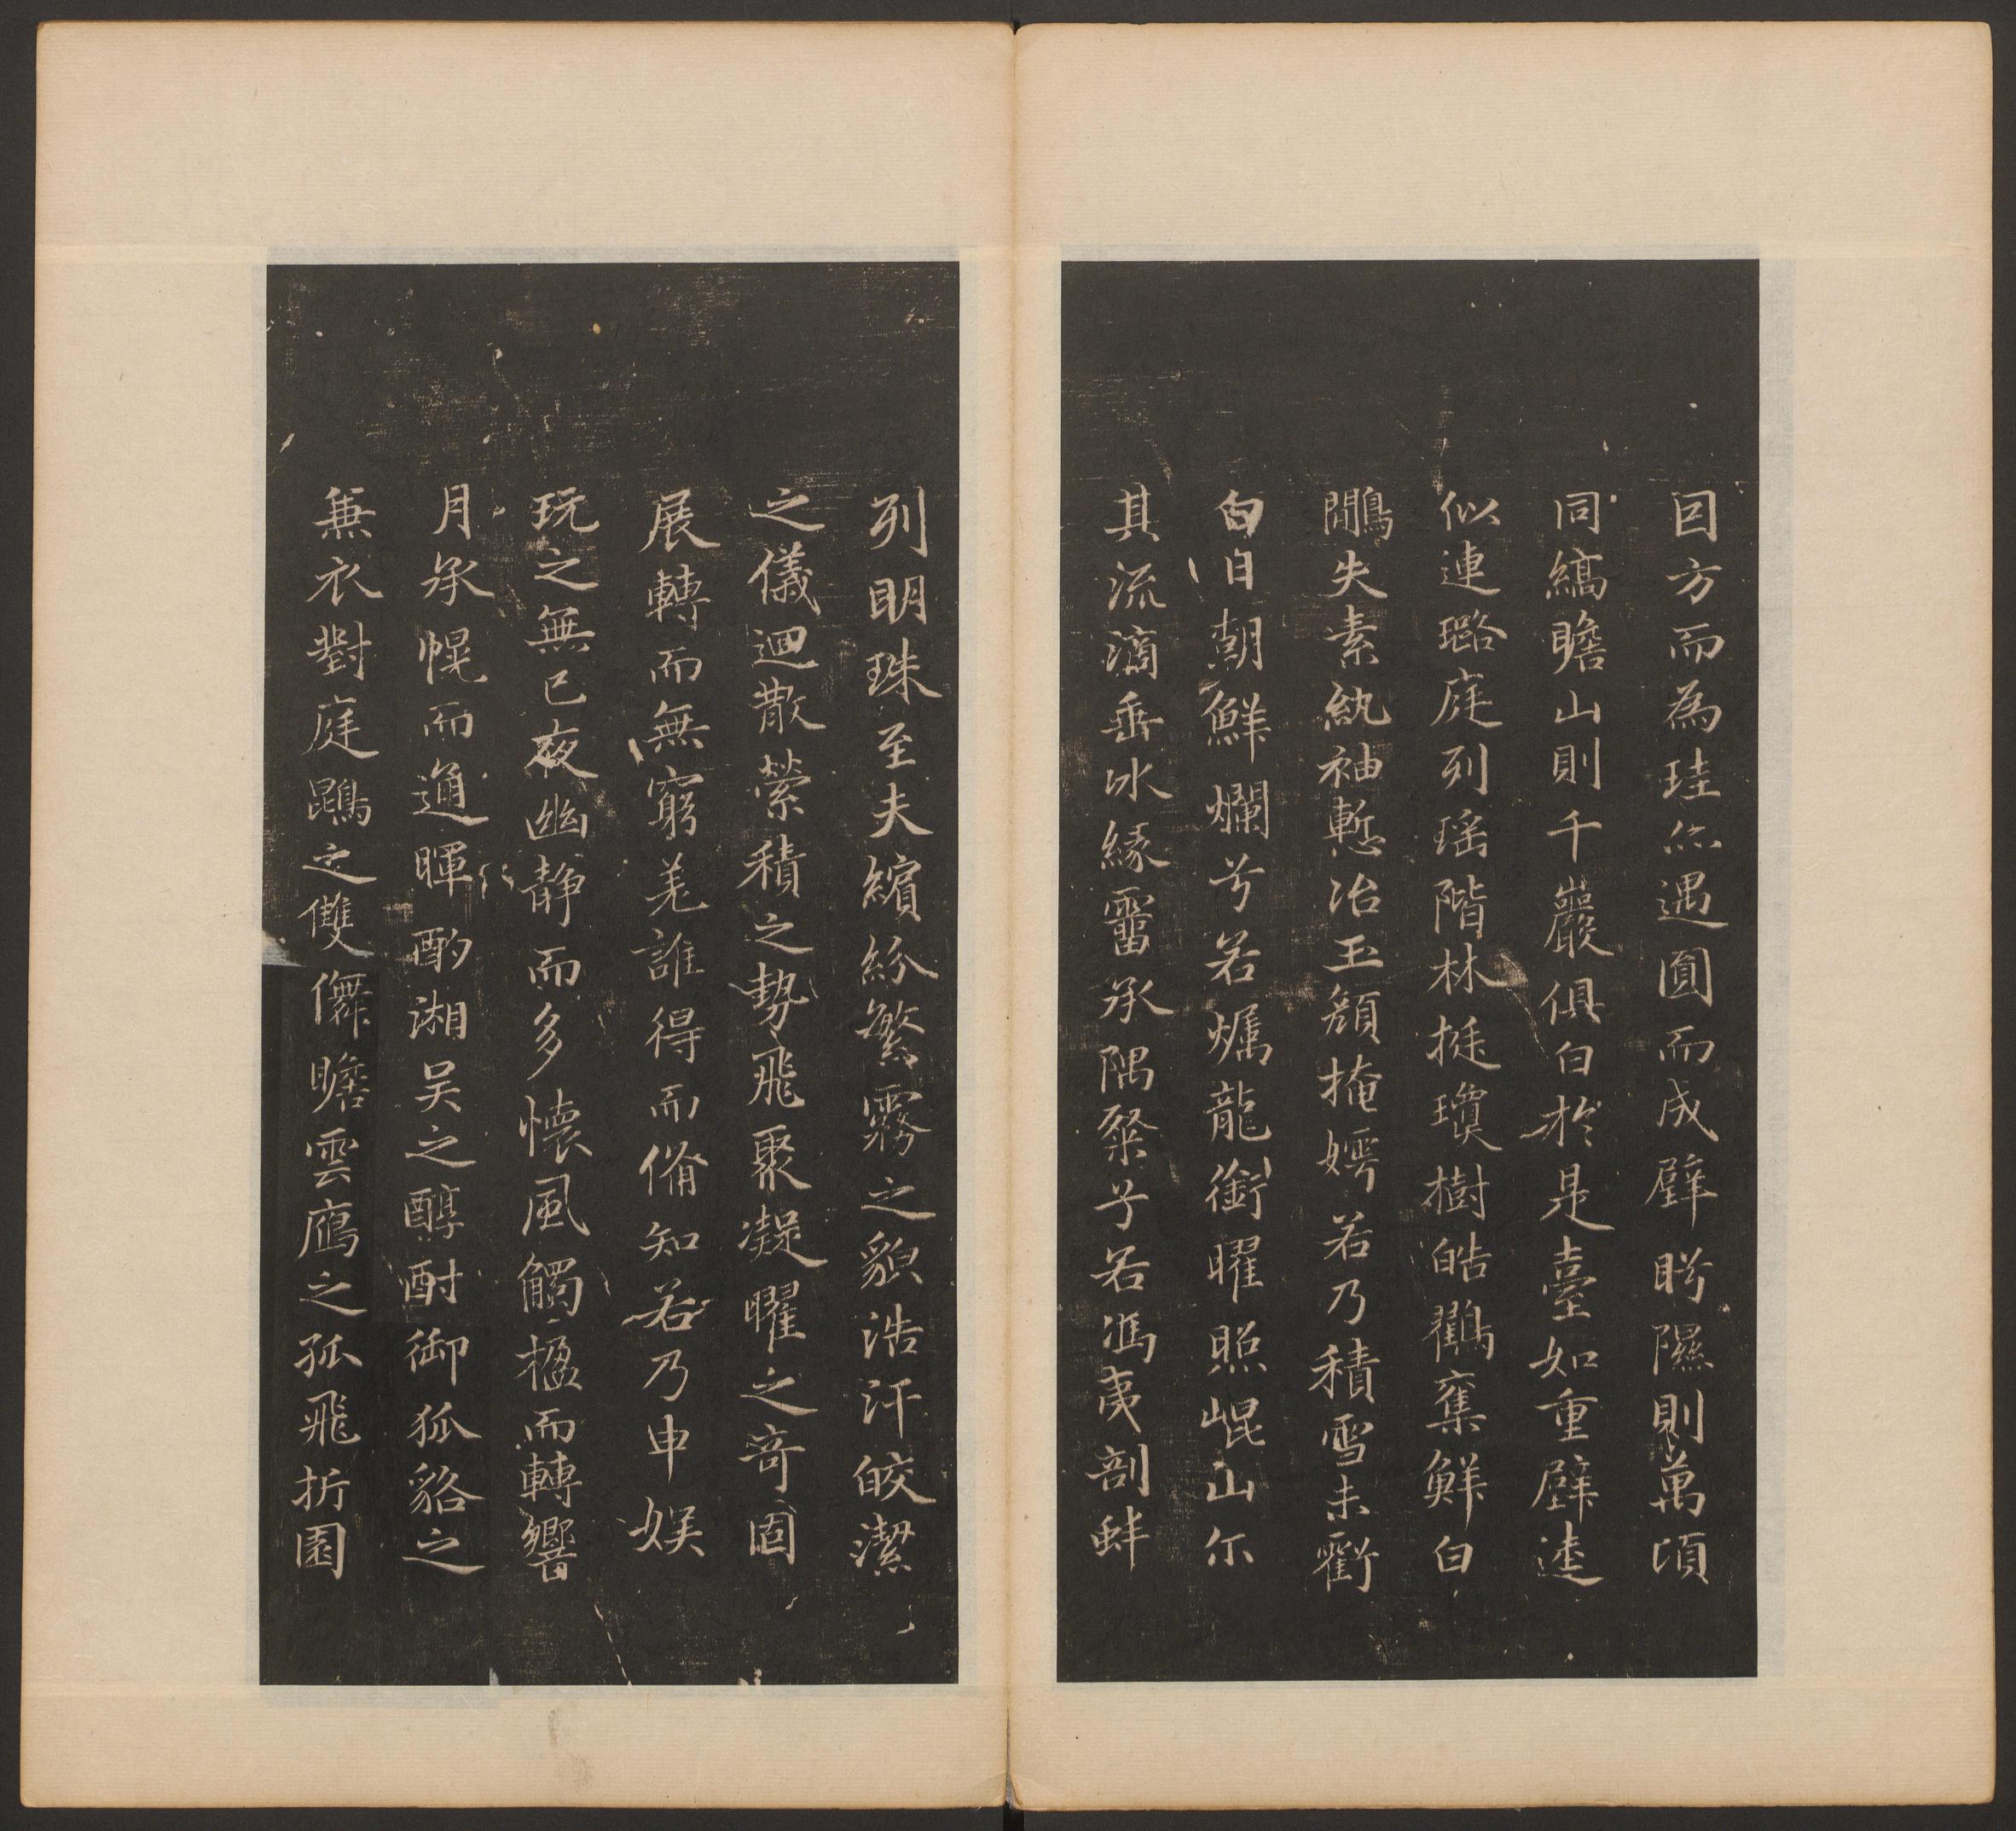 因方而為珪亦遇圓而成璧眄隰則萬頃
同縞瞻山則千巖俱白於是臺如重璧逵
似連璐庭列瑤階林挺瓊樹皓鶴奪鮮白
鷳失素紈袖慙冶玉顏掩嫮若乃積雪未虧
白日朝鮮爛兮若爥龍銜曜照崐山尔
其流滴垂冰緣霤承隅粲兮若馮夷剖蚌
列明珠至夫繽紛繁霧之貌浩汗皎潔
之儀迴散縈積之勢飛聚凝曜之奇固
展轉而無窮羌誰得而備知若乃申娛
玩之無已夜幽静而多懷風觸楹而轉響
月承幌而通暉酌湘吴之醇酎御狐貉之
兼衣對庭鵾之雙儛瞻雲鴈之孤飛折園